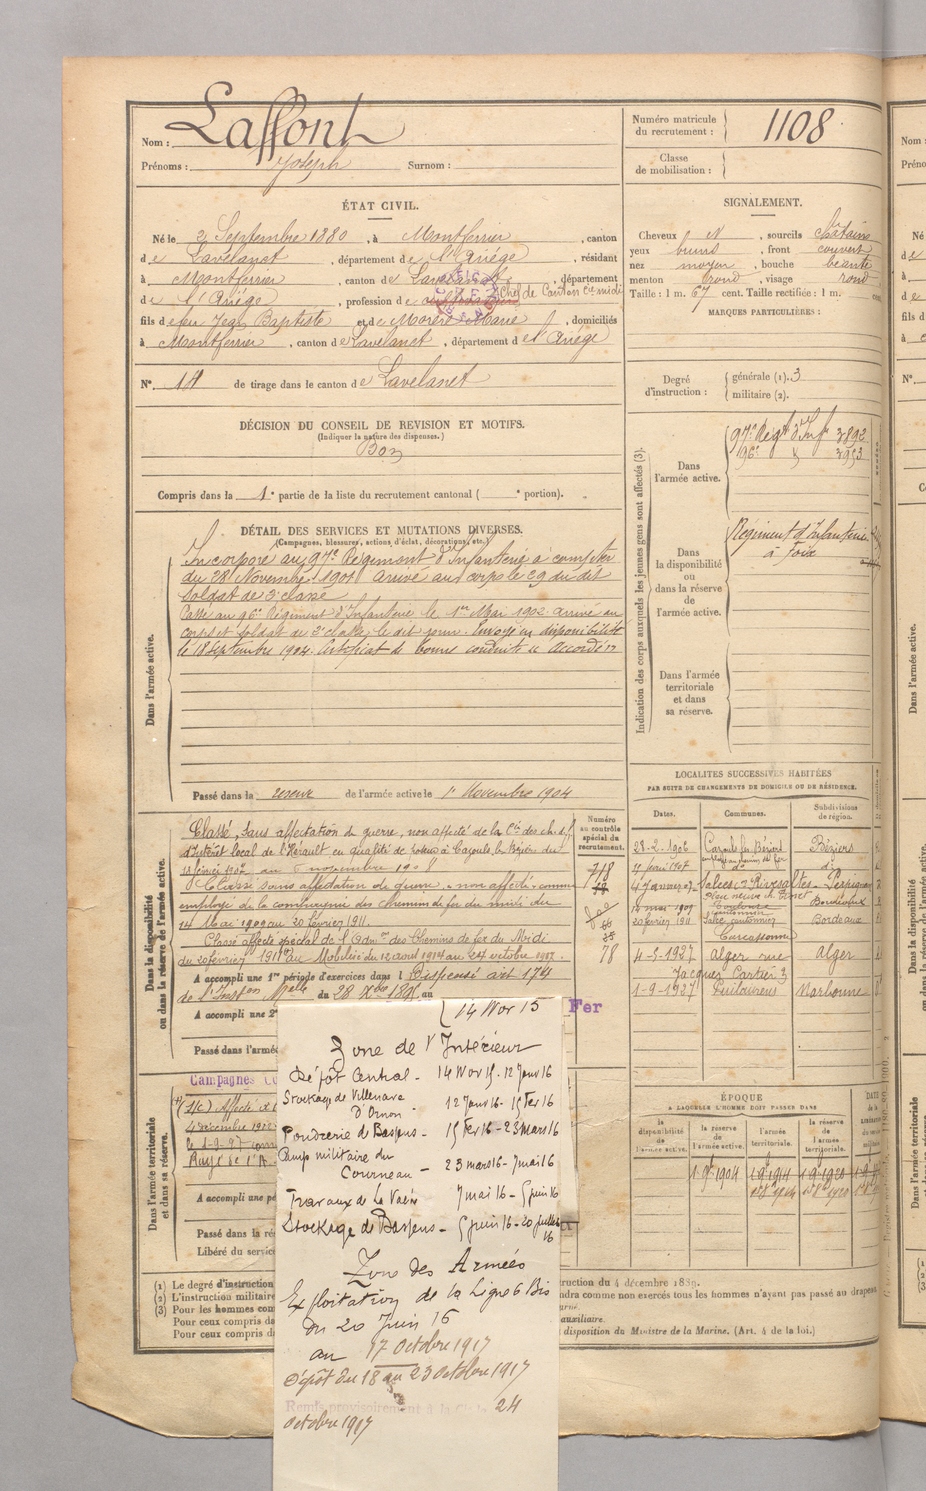 Nom : Laffont
Prénoms : Joseph Surnom :
Numéro matricule du recrutement : 1108
Classe de mobilisation :
ÉTAT CIVIL.
Né le 2 Septembre 1880, à Montferrier, canton
de Lavelanet, département de l'Ariège, résidant
à Montferrier, canton de Lavelanet, département
de l'Ariège, profession de Chef de Canton Cie midi
fils de feu Jean Baptiste et de Morère Marie, domiciliés
à Montferrier, canton de Lavelanet, département de l'Ariège
N° de tirage dans le canton de Lavelanet
SIGNALEMENT.
Cheveux N, sourcils châtains
yeux bruns, front couvert
nez moyen, bouche béante
menton rond, visage rond
Taille : 1 m. 67 cent. Taille rectifiée : 1 m. cent.
MARQUES PARTICULIÈRES :
Degré d'instruction :
générale (1). 3
militaire (2).
DÉCISION DU CONSEIL DE REVISION ET MOTIFS.
(Indiquer la nature des dispenses.)
Bon
Compris dans la 1e partie de la liste du recrutement cantonal ( e portion).
DÉTAIL DES SERVICES ET MUTATIONS DIVERSES.
(Campagnes, blessures, actions d'éclat, décorations, etc.)
Dans l'armée active.
Incorporé au 97e Régiment d'Infanterie à compter
du 28 Novembre 1901 arrivé au corps le 29 du dit
Soldat de 2e classe
Passé au 96e Régiment d'Infanterie le 1er Mai 1902 arrivé au
corps et Soldat de 2e classe le dit jour. Envoyé en disponibilité
le 18 septembre 1904. Certificat de bonne conduite Accordé
Passé dans la réserve de l'armée active le 1er Novembre 1904
Indication des corps auxquels les jeunes gens sont affectés (3).
Dans l'armée active.
97e Régt d'Infie 3892
96e 3953
Dans la disponibilité ou dans la réserve de l'armée active.
Régiment d'Infanterie
à Foix
Dans l'armée territoriale et dans sa réserve.
Dans la disponibilité ou dans la réserve de l'armée active.
Classé, sans affectation de guerre, non affecté de la Cie des ch. d. f.
d'intérêt local de l'Hérault en qualité de à Cazouls les Béziers du
février 1907 au 6 novembre 1908
Classé sans affectation de guerre, non affecté comme
employé de la compagnie des chemins de fer du midi du
14 Mai 1909 au 20 février 1911.
Classé affecté spécial de l'Adm on des Chemins de fer du Midi
du 20 février 1911 au Mobilisé du 12 août 1914 au 24 octobre 1917.
A accompli une 1re période d'exercices dans l Dispensé art 174
de l'Inston Melle du 28 Xbre 1895 au
A accompli une 2e
Passé dans l'armée
Numéro au contrôle spécial du recrutement.
718
78
LOCALITÉS SUCCESSIVES HABITÉES
PAR SUITE DE CHANGEMENTS DE DOMICILE OU DE RÉSIDENCE.
Dates. Communes. Subdivisions de région.
28-2-1906 Cazouls les Béziers Béziers
1907 do do
Salces Rivesaltes Perpignan
14 mai 1909 Bordeaux
20 février 1911 cantonnier Bordeaux
Carcassonne
4-5-1927 Alger rue Jacques Cartier 3 Alger
1-9-1927 Puilaurens Narbonne
ÉPOQUE
A LAQUELLE L'HOMME DOIT PASSER DANS
la disponibilité de l'armée active.
la réserve de l'armée active.
l'armée territoriale.
la réserve de l'armée territoriale.
1.9bre 1904 1.9.1914 1.9.1920
Fer
Dans l'armée territoriale et dans sa réserve.
Campagnes
A accompli une pé
Passé dans la rés
Libéré du service
14 Nov 15
Zone de l'Intérieur
Dépôt Central - 14 Nov 15 - 12 Janv 16
Stockage de Villenave
d'Ornon - 12 Janv 16 - 15 Fev 16
Poudrerie de Bassens - 15 Fev 16 - 23 Mars 16
Camp militaire du
Courneau - 23 mars 16 - 7 mai 16
Travaux de La 7 mai 16 - 5 juin 16
Stockage de Bassens - 5 juin 16 - 20 juillet 16
Zone des Armées
Exploitation de la Ligne 6 Bis
du 20 Juin 16
au 17 Octobre 1917
Dépôt du 18 au 23 Octobre 1917
Remis provisoirement à la Cie 24
Octobre 1917
(1) Le degré d'instruction
(2) L'instruction militaire
(3) Pour les hommes con
Pour ceux compris da
Pour ceux compris d
ruction du 4 décembre 1889.
ndra comme non exercés tous les hommes n'ayant pas passé au drapeau
auxiliaire.
disposition du Ministre de la Marine. (Art. 4 de la loi.)